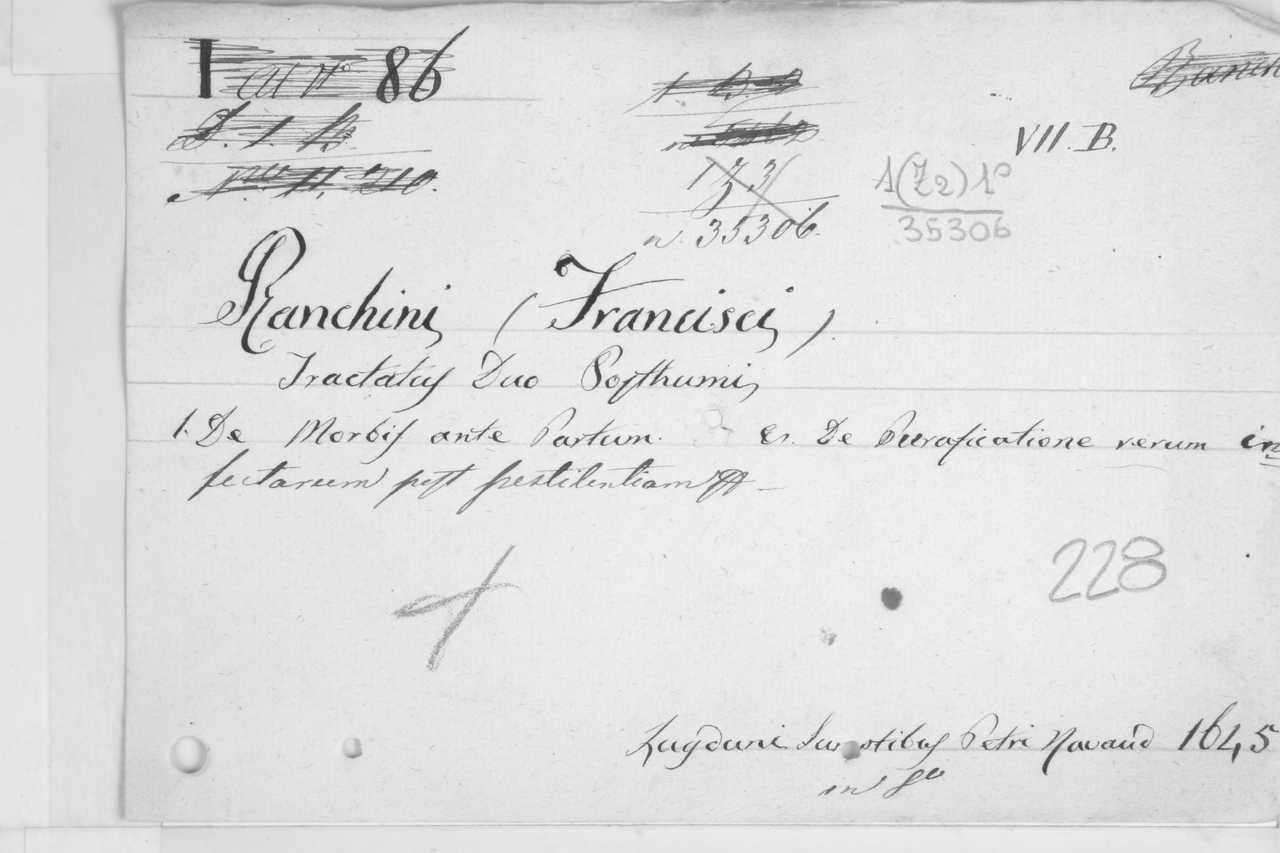 I 86
VII. B.
1(Z2)1º
35306
1 Z.3/
n. 35306.
Ranchini (Francisci).
Tractatus Duo Posthumi,
1. De Morbis ante Partum. Et. De Puraficatione rerum in
fectarum post pestilentiam
228
Lugduni Sumptibus Petri Ravaud 1645
in 8º